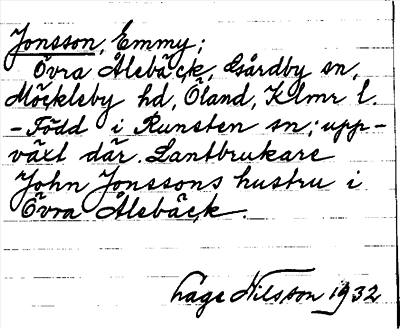 Jonsson, Emmy;
Övra Ålebäck, Gårdby sn,
Möckleby hd, Öland, Klmr l.
- Född i Runsten sn; upp-
växt där. Lantbrukare
John Jonssons hustru i
Övra Ålebäck.
Åage Nilsson 1932